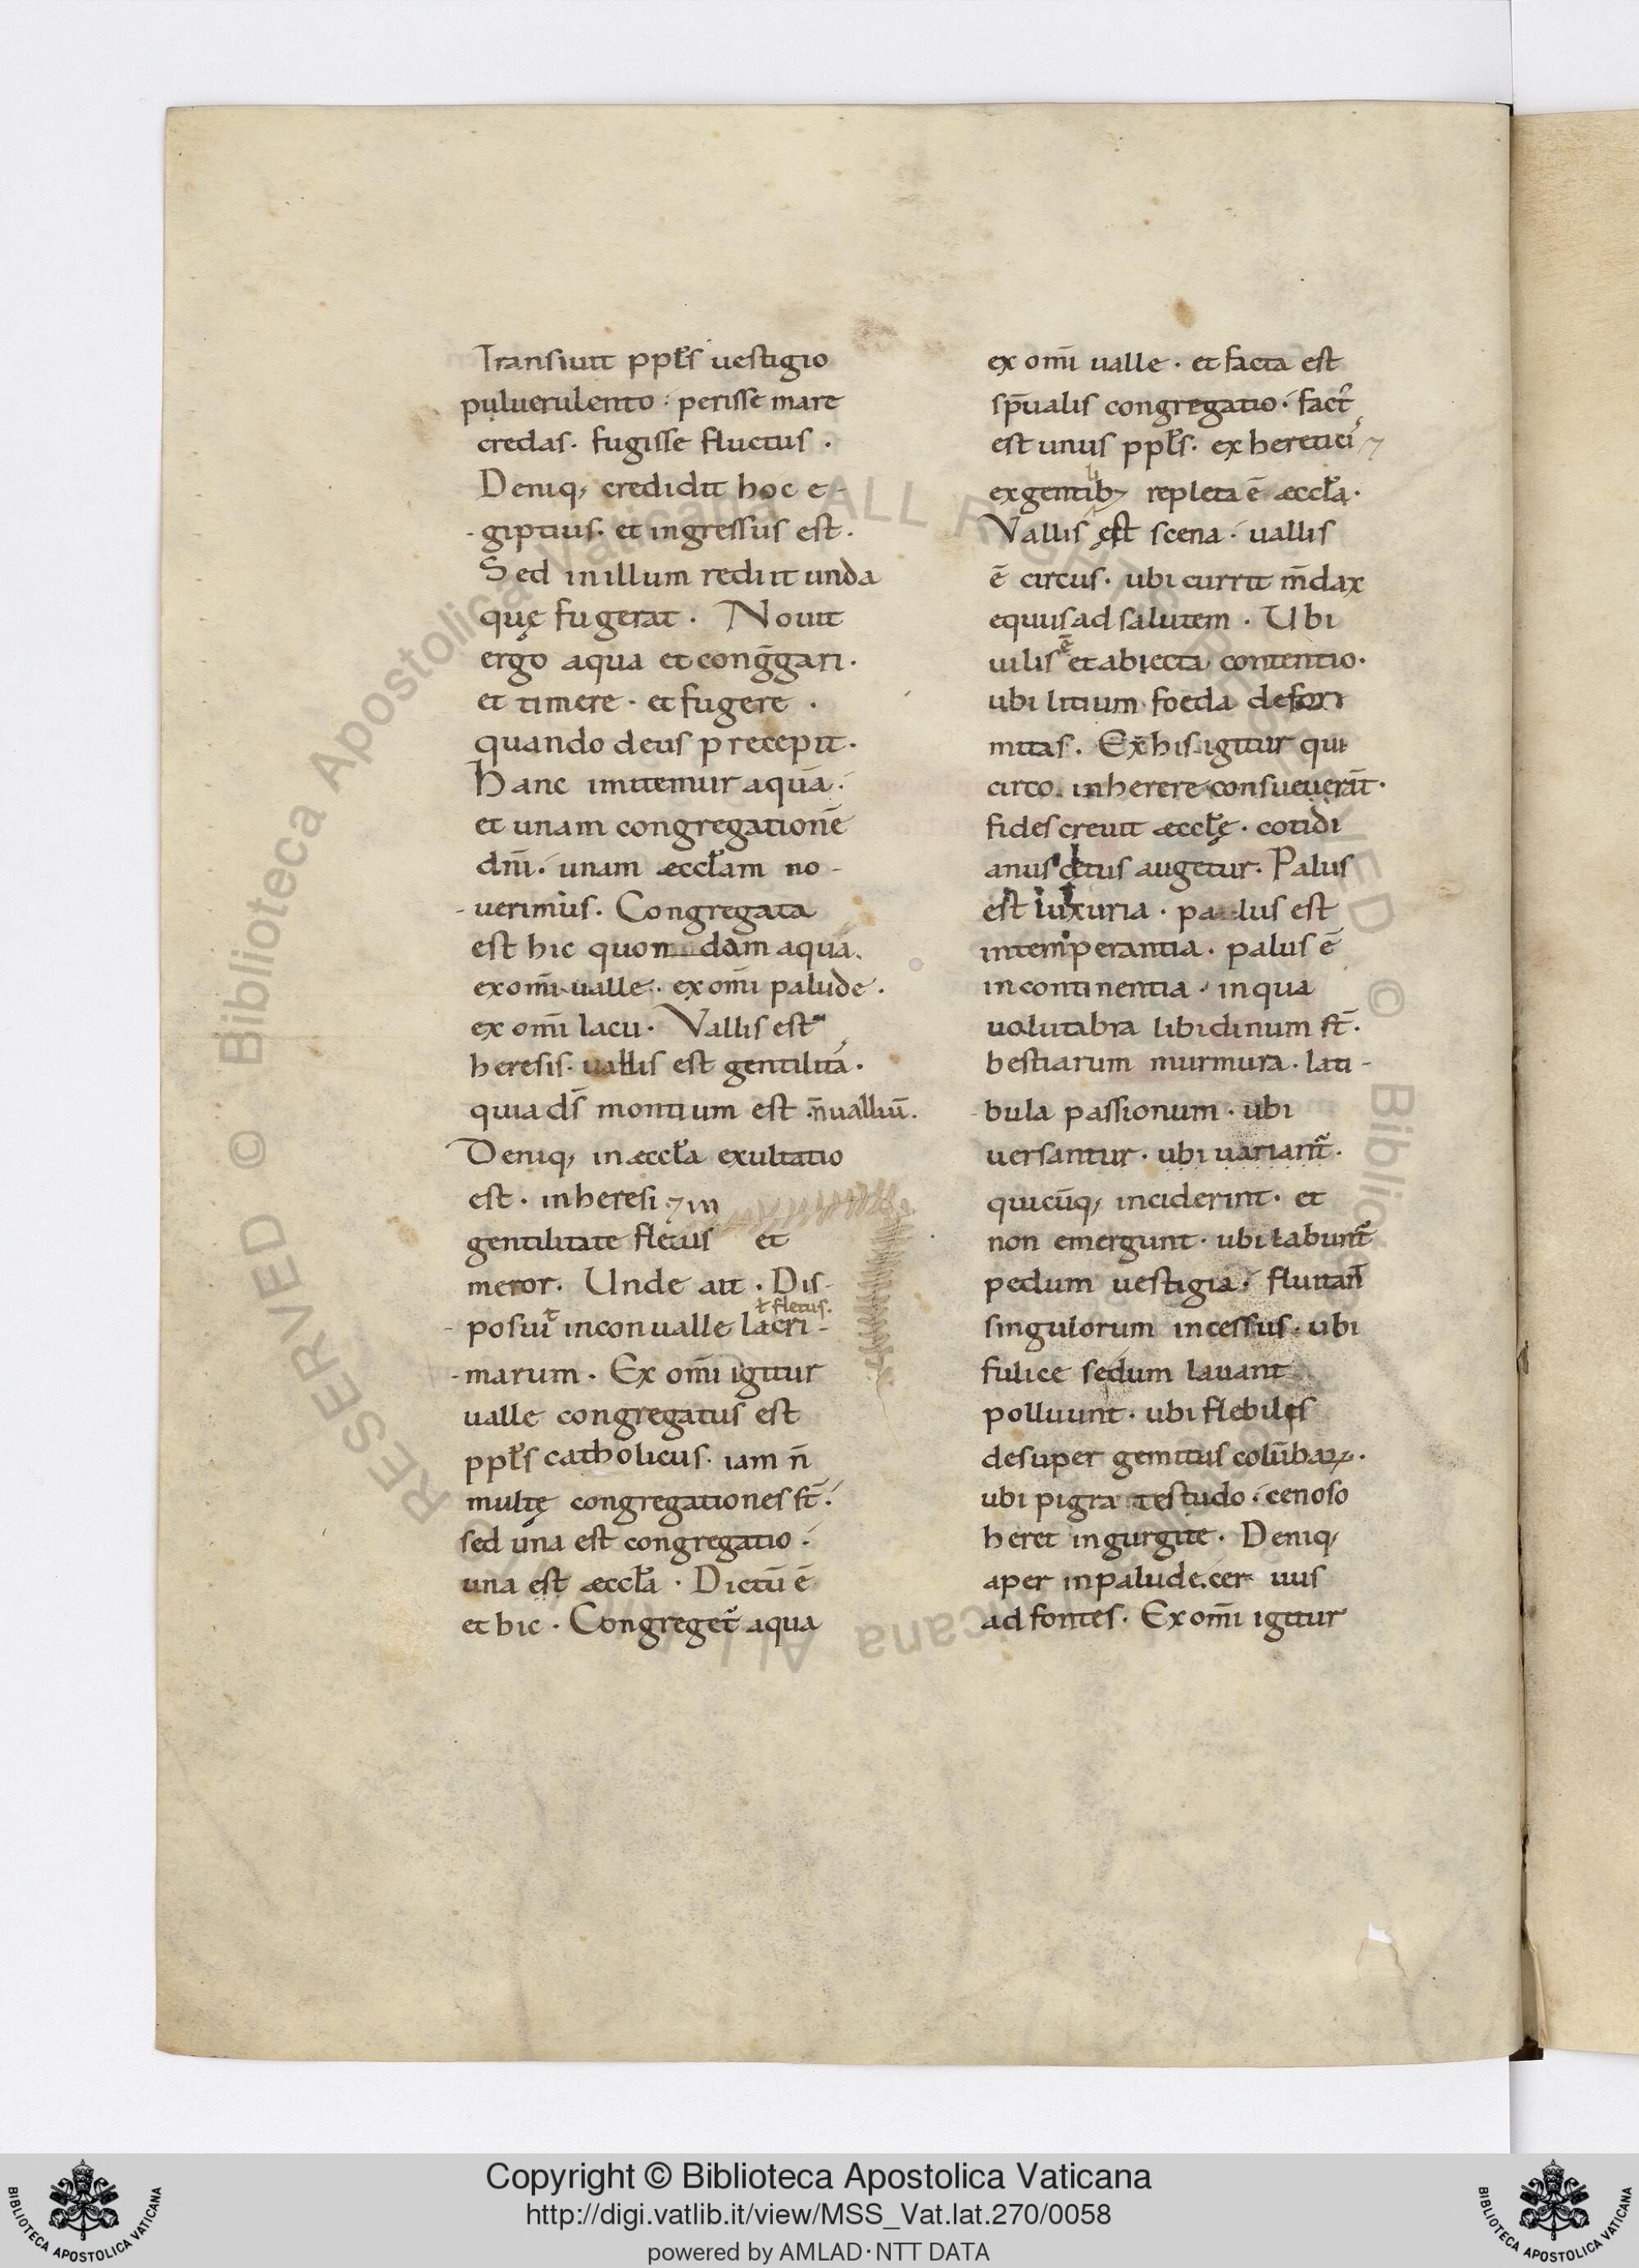 Transiuit ppl̅s uestigio
puluerulento · perisse mare
credas · fugisse fluctus ·
Deniq, credidit hoc e-
-giptius · et ingressus est ·
Sed in illum rediit unda
quę fugerat · Nouit
ergo aqua et cong̅gari ·
et timere · et fugere ·
quando deus precepit ·
Hanc imitemur aquā ·
et unam congregationē
dn̅i · unam æccl̅am no-
-uerimus · Congregata
est hic quondam aqua ·
ex om̅i ualle · ex om̅i palude ·
ex om̅i lacu · Vallis est
heresis · uallis est gentilita ·
quia ds̅ montium est · n̅ ualliū ·
Deniq, in æccl̅a exultatio
est · in heresi ⁊ in
gentilitate fletus et
meror · Unde ait · Dis-
ł fletus ·
-posuit in conualle lacri-
-marum · Ex om̅i igitur
ualle congregatus est
ppl̅s catholicus · iam n̅
multę congregationes st̅ ·
sed una est congregatio ·
una est æccl̅a · Dictū ē
et hic · Congreget̅ aqua
ex om̅i ualle · et facta est
sp̅ualis congregatio · fact̅
est unus ppl̅s · ex heretici ⁊
ex gentib; repleta ē æccl̅a ·
Vallis est scena · uallis
ē circus · ubi currit m̅dax
equus ad salutem · Ubi
uilis ē et abiecta contentio ·
ubi litium foeda defor
mitas · Ex his igitur qui
circo inherere consueuerāt ·
fides creuit æccl̅ę · cotidi
anus cetus augetur · Palus
est luxuria · palus est
intemperantia · palus ē
incontinentia · in qua
uolutabra libidinum st̅ ·
bestiarum murmura · lati-
-bula passionum · ubi
uersantur · ubi uariant̅ ·
quicūq, inciderint · et
non emergunt · ubi labunt̅
pedum uestigia · fluitant
singulorum incessus · ubi
fulice sedum lauant
polluunt · ubi flebiles
desuper gemitus colūbaꝝ ·
ubi pigra testudo · cenoso
heret in gurgite · Deniq,
aper in palude · cer uus
ad fontes · Ex om̅i igitur
ALL RIGHTS RESERVED © Biblioteca Apostolica Vaticana
Copyright © Biblioteca Apostolica Vaticana
http://digi.vatlib.it/view/MSS_Vat.lat.270/0058
powered by AMLAD·NTT DATA
BIBLIOTECA APOSTOLICA VATICANA
BIBLIOTECA APOSTOLICA VATICANA